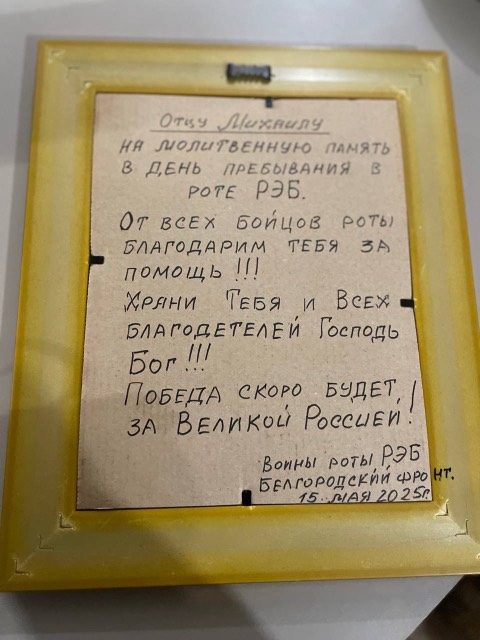 Отцу Михаилу
на молитвенную память
в день пребывания в
роте РЭБ.
От всех бойцов роты
благодарим тебя за
помощь!!!
Храни Тебя и Всех
благодетелей Господь
Бог!!!
Победа скоро будет,
за Великой Россией!
Воины роты РЭБ
Белгородский фронт.
15 мая 2025г.